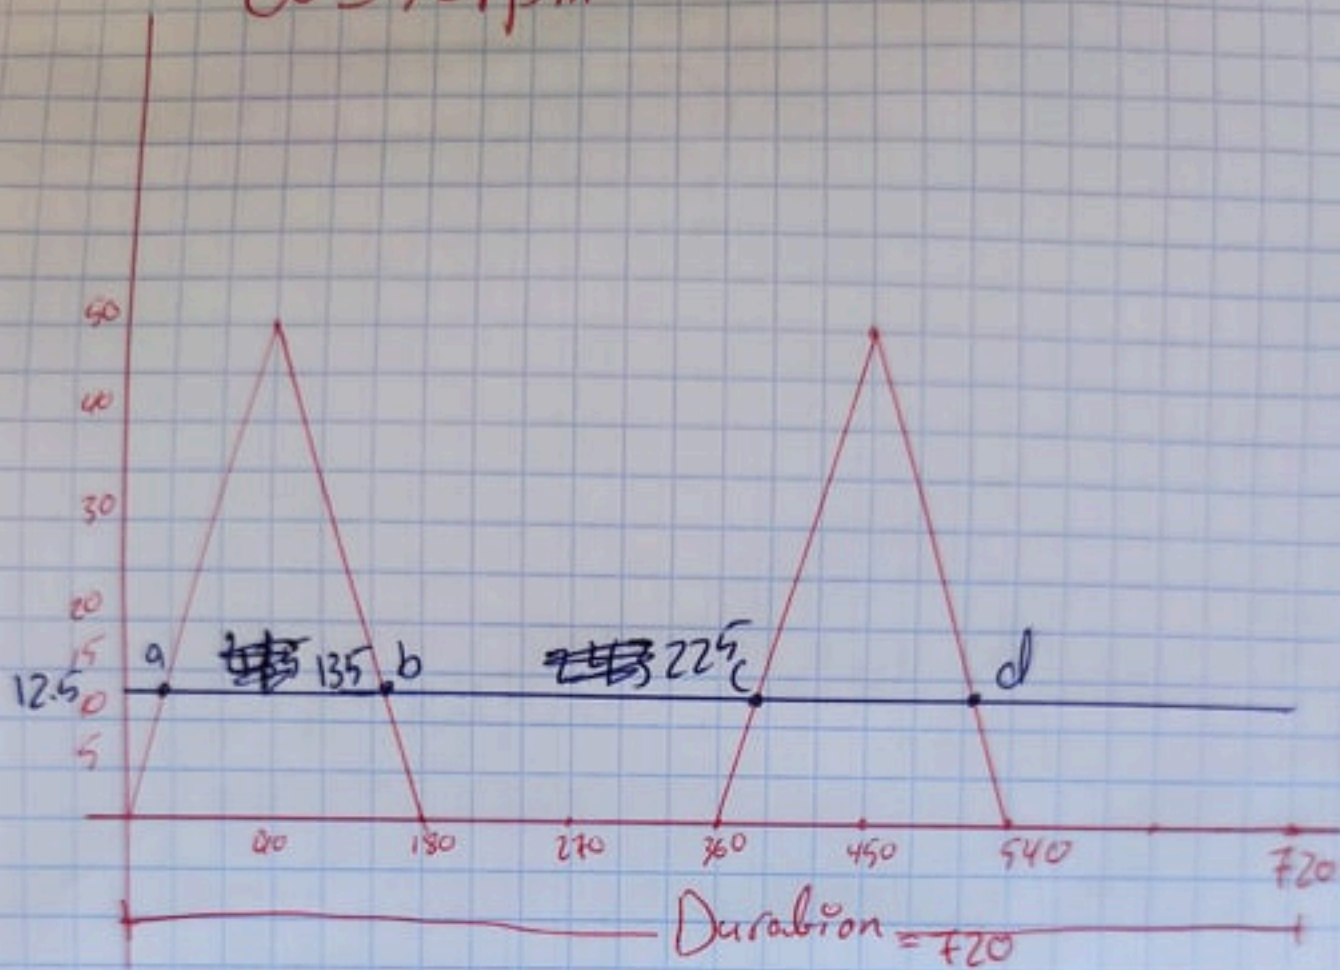 50
40
30
20
15
12.5
5
a 135 b 225 c d
90 180 270 360 450 540 720
Durabion = 720